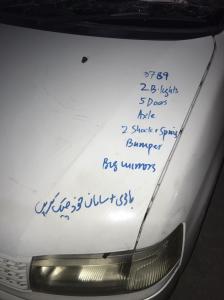 3789
2 B.lights
5 Doors
Axle
2 Shock + Spring
Bumper
Big mirrors
باڈی + سامان خود چیک کریں